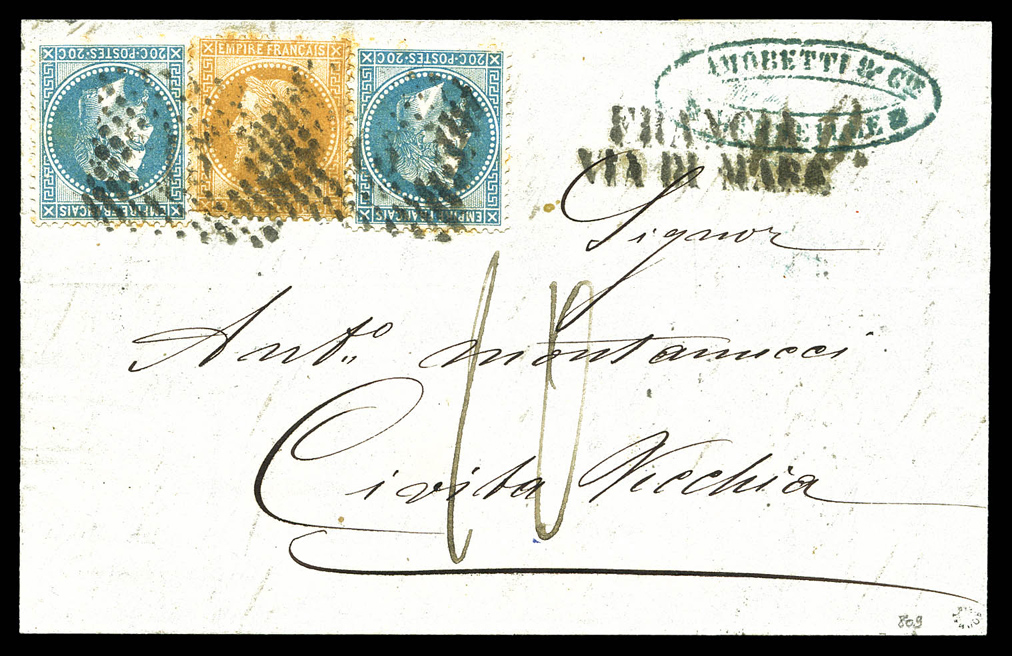 20C·POSTES·20C
EMPIRE FRANÇAIS
EMPIRE FRANÇAIS
20C·POSTES·20C
EMPIRE FRANÇAIS
AMORETTI & Cie
FRANCIA
VIA DI MARE
Signor
Anto. Montanucci
Civita Vecchia
10
809